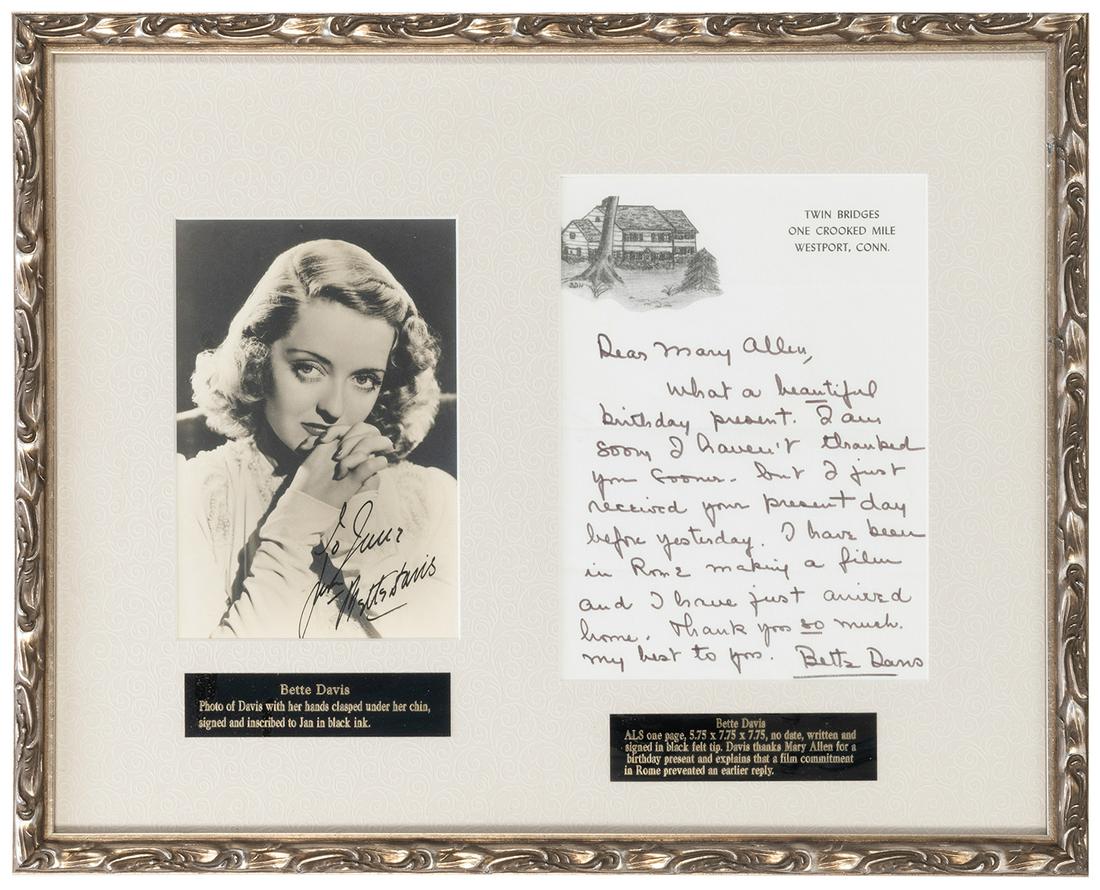 To June
Bette Davis
Bette Davis
Photo of Davis with her hands clasped under her chin,
signed and inscribed to Jan in black ink.
TWIN BRIDGES
ONE CROOKED MILE
WESTPORT, CONN.
Dear Mary Allen,
What a beautiful
birthday present. I am
sorry I haven't thanked
you sooner - but I just
received your present day
before yesterday. I have been
in Rome making a film
and I have just arrived
home. Thank you so much.
My best to you. Bette Davis
Bette Davis
ALS one page, 5.75 x 7.75 x 7.75, no date, written and
signed in black felt tip. Davis thanks Mary Allen for a
birthday present and explains that a film commitment
in Rome prevented an earlier reply.